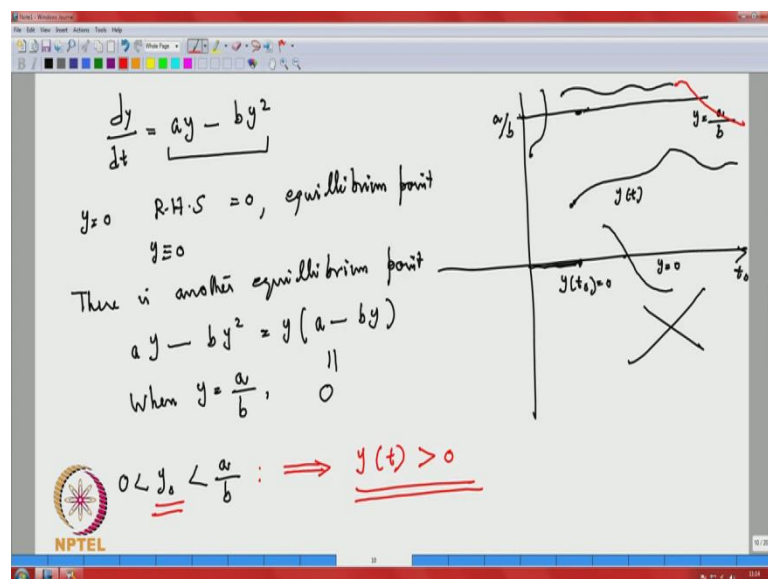 Note1 - Windows Journal
File Edit View Insert Actions Tools Help
Whole Page
dy/dt = ay - by²
y=0 R.H.S =0, equillibrium point
y≡0
There is another equillibrium point
ay - by² = y(a - by)
||
When y = a/b, 0
0 < y₀ < a/b : ⟹ y(t) > 0
a/b
y = a/b
y(t)
y(t₀)=0
y=0
t₀
NPTEL
10